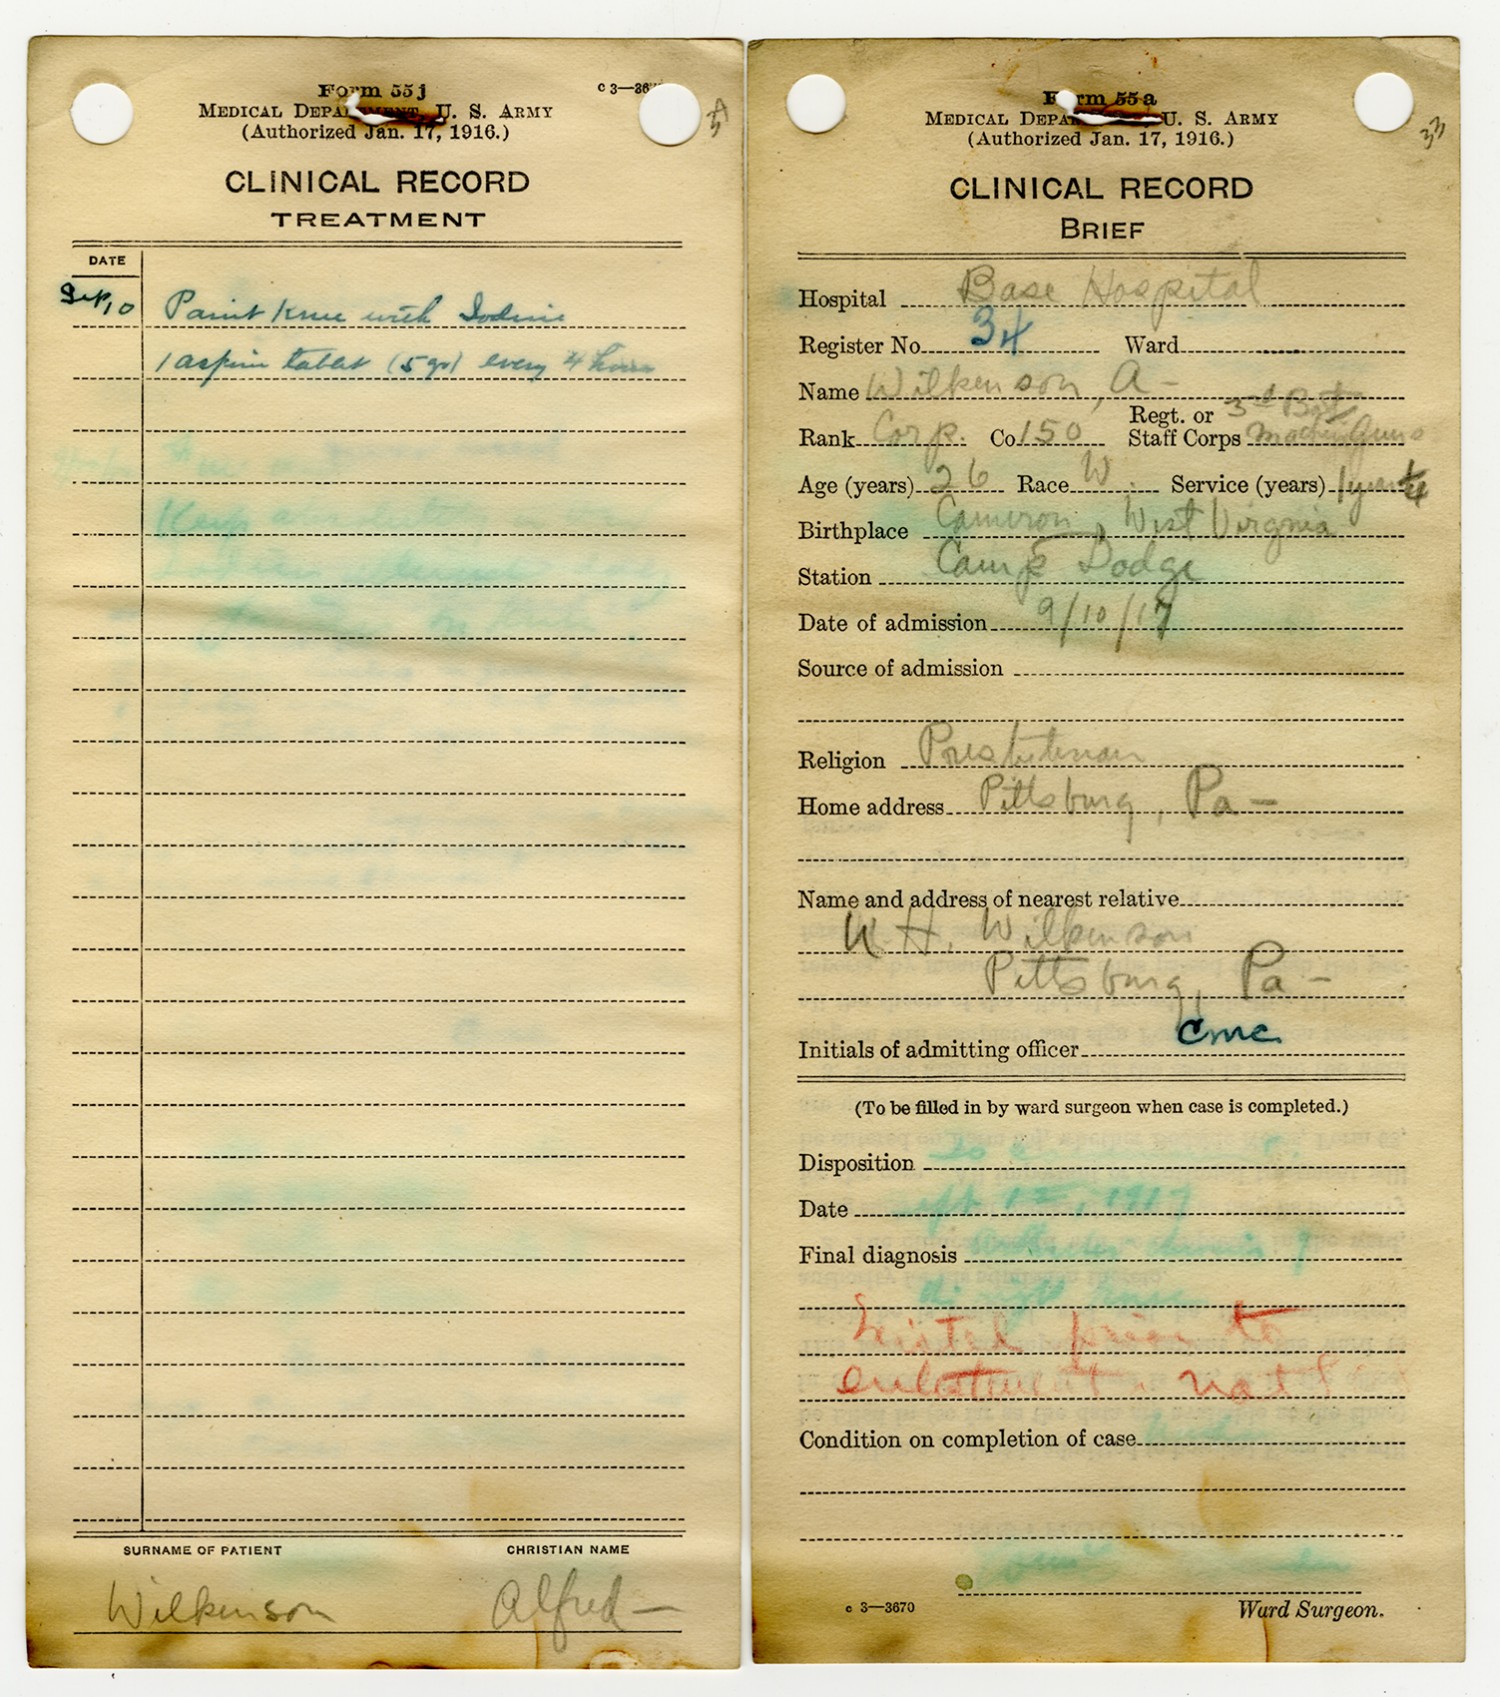 Form 55j
C 3—367
MEDICAL DEPARTMENT, U. S. ARMY
(Authorized Jan. 17, 1916.)
CLINICAL RECORD
TREATMENT
DATE
Sept 10 Paint Knee with Iodine
1 aspirin tablet (5 gr) every 4 hours
SURNAME OF PATIENT CHRISTIAN NAME
Wilkinson Alfred —
Form 55a
33
MEDICAL DEPARTMENT U. S. ARMY
(Authorized Jan. 17, 1916.)
CLINICAL RECORD
BRIEF
Hospital Base Hospital
Register No. 34 Ward
Name Wilkinson, A —
Rank Corp. Co. 150 Regt. or Staff Corps 3rd Bat Machine Guns
Age (years) 26 Race W. Service (years) 1 year
Birthplace Cameron, West Virginia
Station Camp Dodge
Date of admission 9/10/17
Source of admission
Religion
Home address Pittsburg, Pa —
Name and address of nearest relative
W. H. Wilkinson
Pittsburg, Pa —
Initials of admitting officer CMC
(To be filled in by ward surgeon when case is completed.)
Disposition
Date 1917
Final diagnosis
right knee
prior to
enlistment not
Condition on completion of case
C 3—3670
Ward Surgeon.